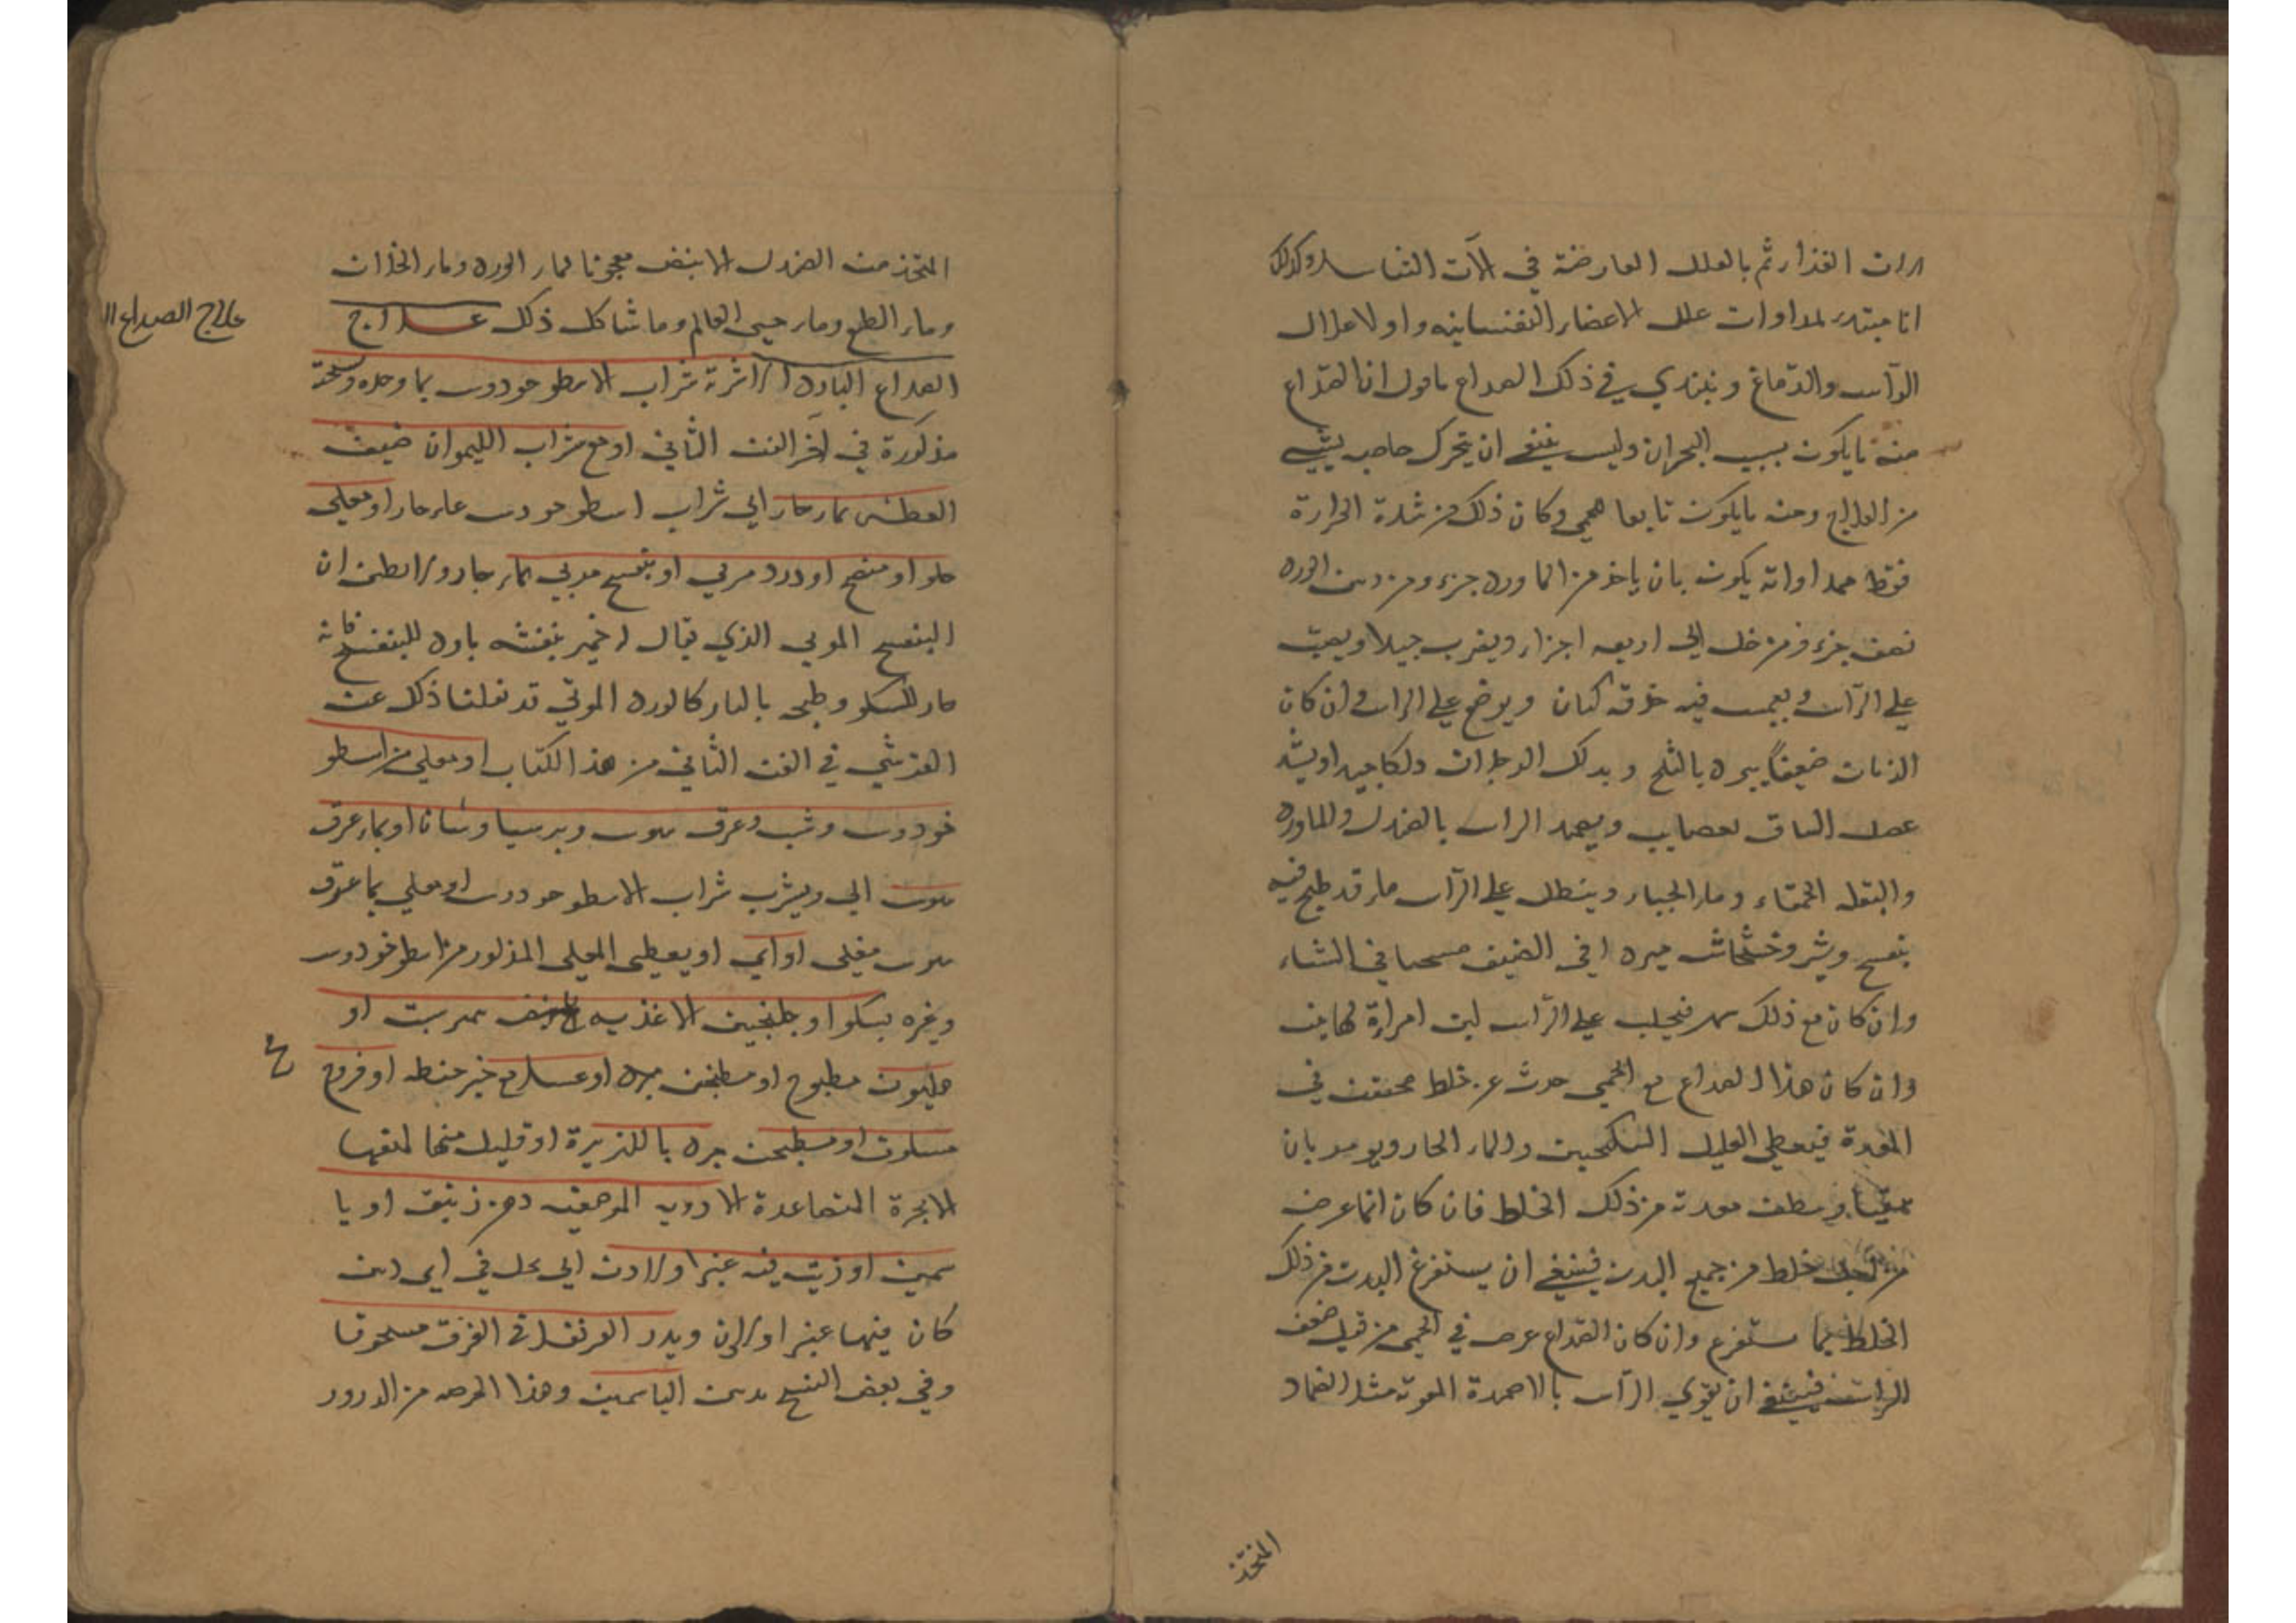 الات الغذاء ثم بالعلل العارضة في الآت التناسل وكذلك
انا مبتدء لمداوات علل الاعضاء النفسانيه واولا علال
الرآس والدماغ ونبتدي في ذلك الصداع فاقول ان الصداع
منه ما يكون بسبب البحران وليس ينبغي ان يتحرك صاحبه لشيء
من العلاج ومنه ما يكون تابعا لحمى وكان ذلك من شدة الحرارة
فقط فمداواته يكون بان ياخذ من الماورد جزء ومن دهن الورد
نصف جزء ومن خل الى اربعه اجزاء ويضرب جيدا ويصب
علي الرآس ويغمس فيه خرقه كتان ويوضع علي الراس وان كان
الزمان صيفاً يبرد بالثلج ويدلك الرجلان دلكا جيدا ويشد
عضل الساق بعصايب ويضمد الراس بالصندل والماورد
والبقله الحمقاء وماء الخيار وينطل علي الرآس ماء قد طبخ فيه
بنفسج وشعير وخشخاش مبرد في الصيف مسخنا في الشتاء
وان كان مع ذلك سهر فيحلب علي الرآس لبن امراة لها بنت
وان كان هذا الصداع مع الحمى حدث عن خلط محتقن في
المعدة فيعطي العليل السكنجبين والماء الحار ويومر بان
يتقيا وينظف معدته من ذلك الخلط فان كان انما عرض
من اجل خلط من جميع البدن فينبغي ان يستفرغ البدن من ذلك
الخلط بما يستفرغ وان كان الصداع عرض في الحمى من قبل ضعف
الراس فينبغي ان يقوي الرآس بالاضمدة المقوية مثل الضماد
المتخذ
المتخذ من الصندل الابيض معجونا بماء الورد وماء الخلاف
وماء الطلع وماء حي العالم وما شاكل ذلك علاج
علاج الصداع ال
الصداع البارد الاشربة شراب الاسطوخودوس بما وحده ونسخته
مذكورة في آخر الفن الثاني او مع شراب الليمو ان خيف
العطش بماء حار الي شراب اسطوخودوس بماء حار او مغلي
حلو او منضج او ورد مربي او بنفسج مربي بماء حار ولا تظن ان
البنفسج المربي الذي يقال خمير بنفشه بارد للبنفسج فانه
حار للسكر وطبخه بالنار كالورد المربي قد نقلنا ذلك عن
القرشي في الفن الثاني من هذا الكتاب او مغلي من اسطو
خودوس وشب وعرق سوس وبرسياوشانا او بماء عرق
سوس الي ويشرب شراب الاسطوخودوس او مغلي بما عرق
سوس مغلي او اي او يعطي المغلي المذكور من اسطوخودوس
وغيره بسكر او جلنجبين الاغذيه
هليون مطبوخ او مطجن مبرد او عسل مع خبز حنطه او فروج
مسلوق او مطجن مبرد بالكزبرة او قليل منها لمنعها
الابخرة المتصاعدة الادويه الموضعيه دهن زنبق او يا
سمين او زيت فيه عنبر او لادن اي يحل في اي دهن
كان منهما عنبر او لادن ويذر القرنفل في الفرق مسحوقا
وفي بعض النسخ بدهن الياسمين وهذا المرض من الذرور